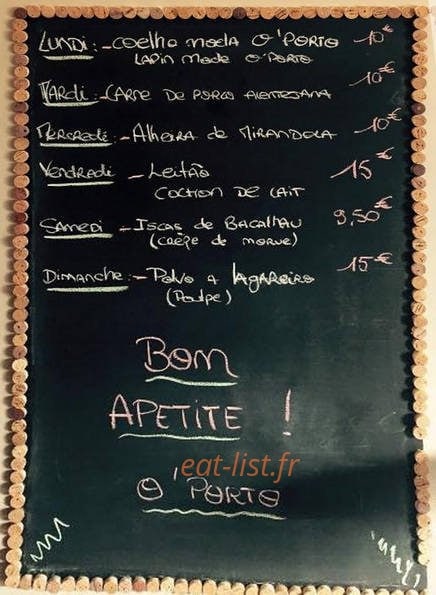 LUNDI :- COELHO MODA O'PORTO 10€
LAPIN MODE O'PORTO
MARDI :- CARNE DE PORCO ALENTEJANA 10€
MERCREDI :- Alheira de MIRANDOLA 10€
VENDREDI - LEITÃO 15€
COCTION DE LAIT
SAMEDI - ISCAS de BACALHAU 9,50€
(CRÊPE de MORUE)
DIMANCHE :- Polvo A lAGAREIRO 15€
(Poulpe)
BOM
APETITE !
eat-list.fr
O'PORTO